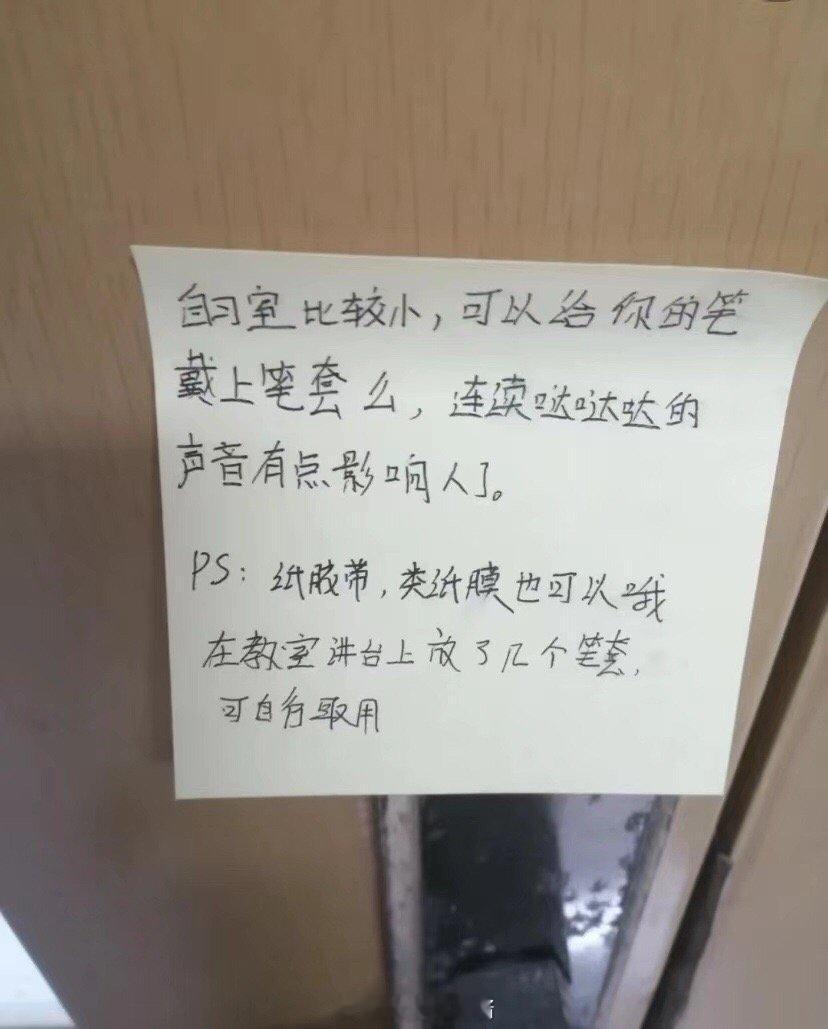 自习室比较小，可以给你的笔
戴上笔套么，连续哒哒哒的
声音有点影响人了。
PS：纸胶带，类纸膜也可以哦
在教室讲台上放了几个笔套，
可自行取用